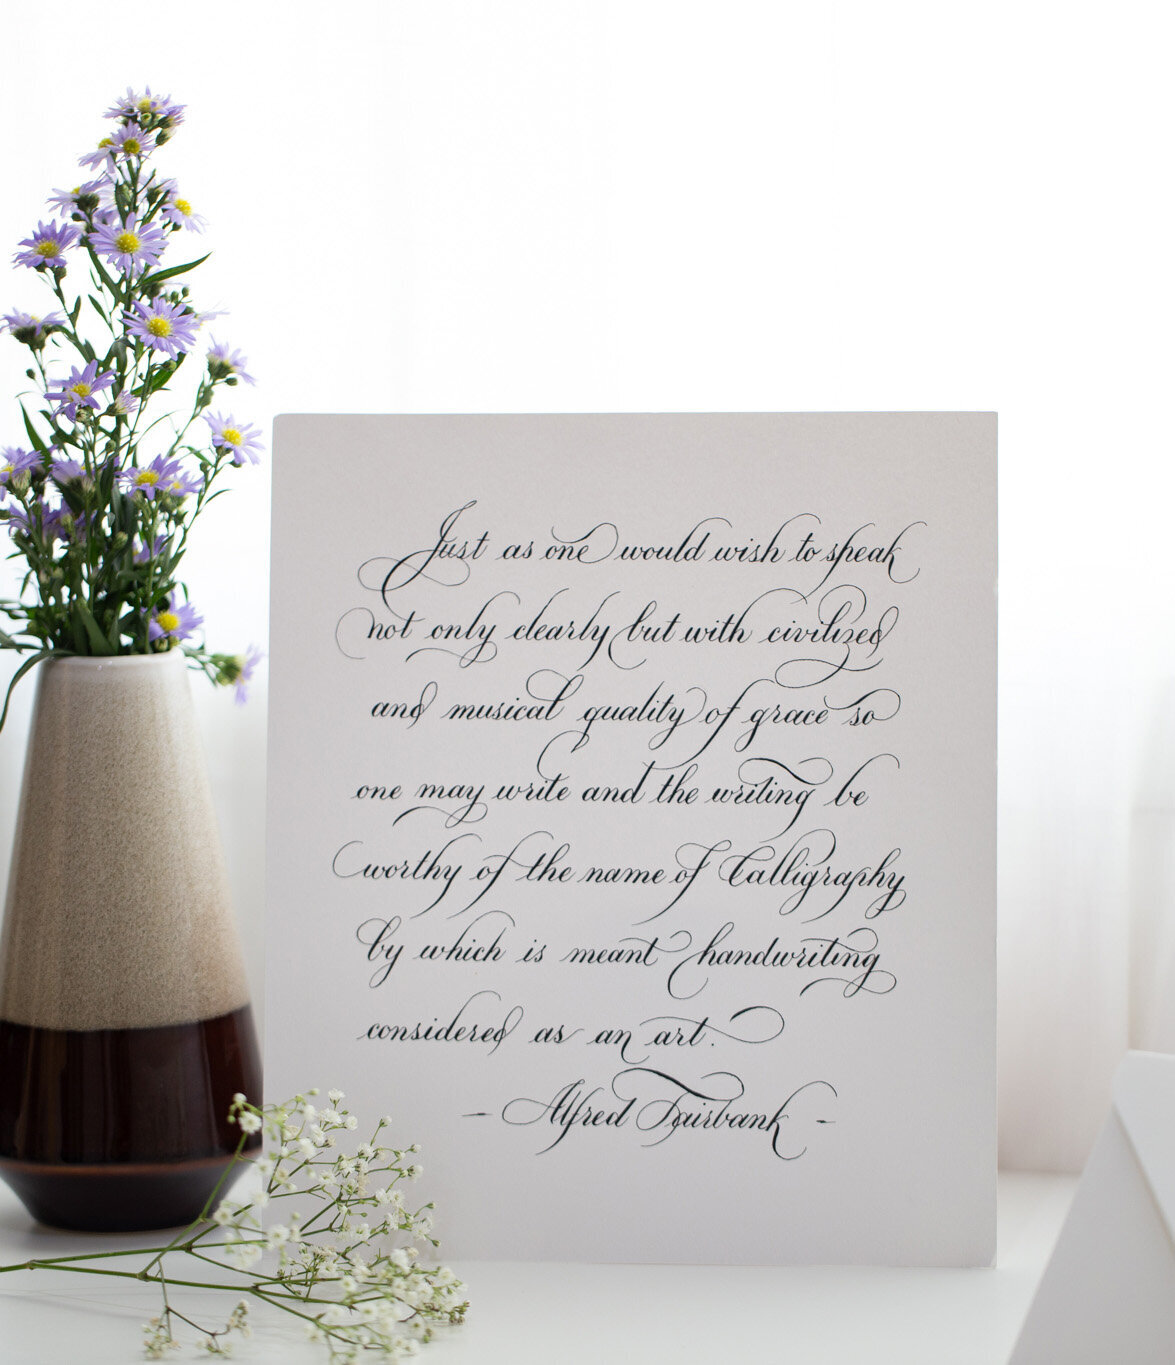 Just as one would wish to speak
not only clearly but with civilized
and musical quality of grace so
one may write and the writing be
worthy of the name of Calligraphy
by which is meant handwriting
considered as an art.
- Alfred Fairbank -